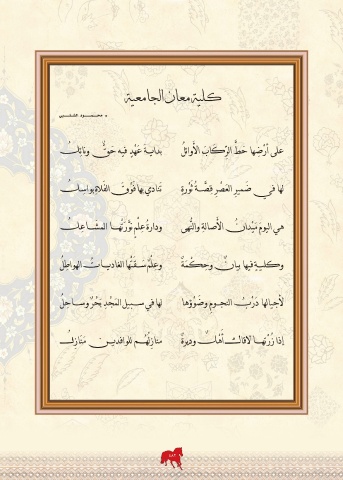 كلية معان الجامعية
د. محمود الشلبي
على أرْضِها حَطَّ الرِّكابَ الأوائلُ بدايةَ عَهْدٍ فيه حَقٌّ ونائلُ
لها في ضميرِ العَصْرِ قِصَّةُ ثَوْرَةٍ تَنادى بها فَوْقَ الفَلاةِ بواسلُ
هي اليومَ مَيْدانُ الأصالةِ والنُّهى ودارةُ عِلْمٍ نَوَّرَتْها المشاعلُ
وكليةٍ فيها بيانٌ وحِكْمَةٌ وعِلْمٌ سَقَتْها الغادياتُ الهواطِلُ
لأجيالها دَرْبُ النجومِ وضَوْؤها لها في سبيل المَجْدِ بَحْرٌ وساحِلُ
إذا زُرْتَها لاقاكَ أهْلٌ وديرةٌ منازِلُهُم للوافدين مَنازِلُ